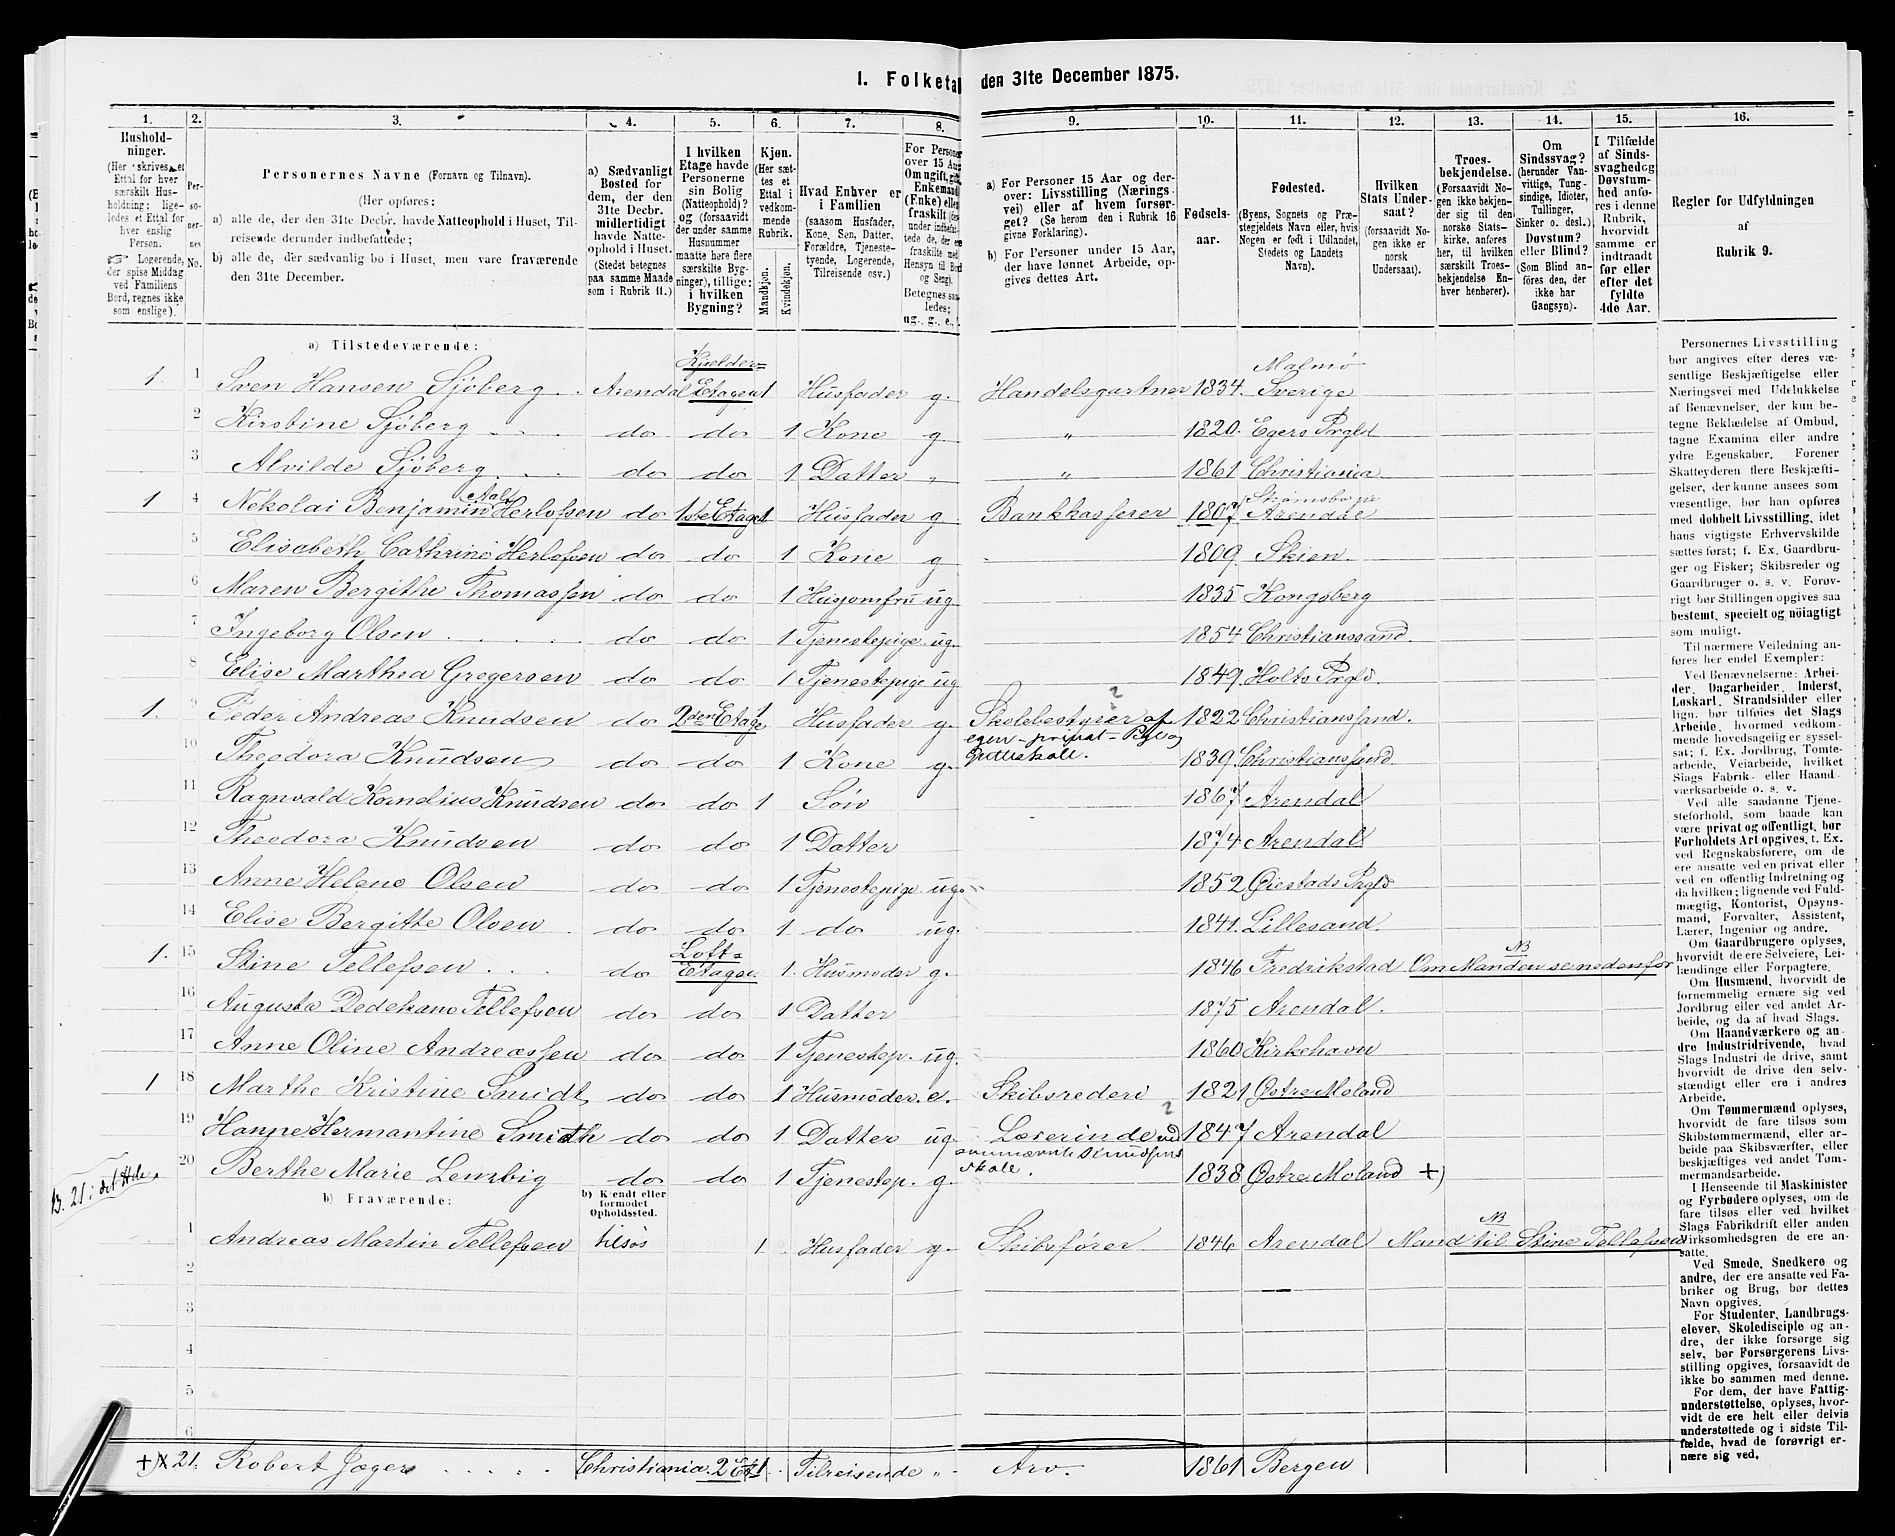 1. Folketal den 31te December 1875.
1. 2. 3. 4. 5. 6. 7. 8. 9. 10. 11. 12. 13. 14. 15. 16.
Hushold-
ninger.
(Her skrives et
Ettal for hver
særskilt Hus-
holdning; lige-
ledes et Ettal for
hver enslig
Person.
Logerende,
der spise Middag
ved Familiens
Bord, regnes ikke
som enslige).
Per-
so-
ner-
nes
No.
Personernes Navne (Fornavn og Tilnavn).
(Her opføres:
a) alle de, der den 31te Decbr. havde Natteophold i Huset, Til-
reisende derunder indbefattede;
b) alle de, der sædvanlig bo i Huset, men vare fraværende
den 31te December.
a) Sædvanligt
Bosted for
dem, der den
31te Decbr.
midlertidigt
havde Natte-
ophold i Huset.
(Stedet betegnes
paa samme Maade
som i Rubrik 11.)
I hvilken
Etage havde
Personerne
sin Bolig
(Natteophold)?
og (forsaavidt
der under samme
Husnummer
maatte høre flere
særskilte Byg-
ninger), tillige:
i hvilken
Bygning?
Kjøn.
(Her sæt-
tes et
Ettal i
vedkom-
mende
Rubrik.
Mandkjøn.
Kvindekjøn.
Hvad Enhver er
i Familien
(saasom Husfader,
Kone, Søn, Datter,
Forældre, Tjeneste-
tyende, Logerende,
Tilreisende osv.)
For Personer
over 15 Aar:
Om ugift, gift,
Enkemand
(Enke) eller
fraskilt
Betegnes saa-
ledes:
ug., g., e.,
a) For Personer 15 Aar og der-
over: Livsstilling (Nærings-
vei) eller af hvem forsør-
get? (Se herom den i Rubrik 16
givne Forklaring).
b) For Personer under 15 Aar,
der have lønnet Arbeide, op-
gives dettes Art.
Fødsels-
aar.
Fødested.
(Byens, Sognets og Præ-
stegjeldets Navn eller, hvis
Nogen er født i Udlandet,
Stedets og Landets
Navn).
Hvilken
Stats Under-
saat?
(forsaavidt No-
gen ikke er
norsk
Undersaat).
Troes-
bekjendelse.
(Forsaavidt No-
gen ikke bekjen-
der sig til den
norske Stats-
kirke, anføres
her, til hvilken
særskilt Troes-
bekjendelse En-
hver henhører).
Om
Sindssvag?
(herunder Van-
vittige, Tung-
sindige, Idioter,
Tullinger,
Sinker o. desl.)
Døvstum?
eller Blind?
(Som Blind an-
føres den, der
ikke har
Gangsyn).
I Tilfælde
af Sinds-
svaghed og
Døvstum-
hed anfø-
res i denne
Rubrik,
hvorvidt
samme er
indtraadt
før eller
efter det
fyldte
4de Aar.
Regler for Udfyldningen
af
Rubrik 9.
a) Tilstedeværende:
1. 1 Sven Hansen Sjöberg Arendal Kjelder-Etagen 1 Husfader g. Handelsgartner 1834. Malmö Sverige
2 Kirstine Sjöberg do do 1 Kone g. " 1820. Egers Prgld
3 Alvilde Sjöberg do do 1 Datter " " 1861 Christiania
1 4 Nekolai Benjamin Aall Herlofsen do 1ste Etage 1 Husfader g Bankkasserer 1807 Strømsbo pr Arendal
5 Elisabeth Cathrine Herlofsen do do 1 Kone g 1809. Skien.
6 Maren Bergithe Thomassen do do 1 Husjomfru ug. 1835 Kongsberg
7 Ingeborg Olsen do do 1 Tjenestepige ug. 1854 Christianssand.
8 Elise Marthea Gregersen do do 1 Tjenestepige ug 1849 Holts Prgld.
1. 9 Peder Andreas Knudsen do 2den Etage 1 Husfader g. Skolebestyrer af egen privat Pige og Gutteskole. ? 1822 Christianssand.
10 Theodora Knudsen do do 1 Kone g. 1839. Christianssand
11 Ragnvald Kornelius Knudsen do do 1 Søn 1867 Arendal
12 Theodora Knudsen do do 1 Datter 1874 Arendal
13 Anne Helene Olsen do do 1 Tjenestepige ug. 1852 Øiestads Prgld
14 Elise Bergitte Olsen do do 1 do ug. 1841. Lillesand.
1. 15 Stine Tellefsen do Loft-Etagen 1. Husmoder g. 1846 Fredrikstad NB Om Manden se nedenfor
16 Augusta Dedekam Tellefsen do do 1 Datter 1875 Arendal.
17 Anne Oline Andreassen do do 1 Tjenestep. ug. 1860 Kirkehavn
1 18 Marthe Kristine Smidt do do 1 Husmoder. e. Skibsrederi 1821 Østre Moland
19 Hanne Hermantine Smidth do do 1 Datter ug. Lærerinde ved ovennævnte Knudsens Skole. ? 1847 Arendal
20 Berthe Marie Lembig do do 1 Tjenestep. g. 1838 Østre Moland +)
B. 21 i det Hele.
b) Fraværende:
b) Kjendt eller
formodet
Opholdssted.
1 Andreas Martin Tellefsen tilsøs 1. Husfader g. Skibsfører 1846 Arendal NB Mand til Stine Tellefsen
2
3
4
5
6
+) 21. Robert Jæger Christiania. 2 Et. 1 Tilreisende " Arv. 1861 Bergen
Personernes Livsstilling
bør angives efter deres væ-
sentlige Beskjæftigelse eller
Næringsvei med Udelukkelse
af Benævnelser, der kun be-
tegne Beklædelse af Ombud,
tagne Examina eller andre
ydre Egenskaber. Forener
Skatteyderen flere Beskjæfti-
gelser, der kunne ansees som
væsentlige, bør han opføres
med dobbelt Livsstilling, idet
hans vigtigste Erhvervskilde
sættes først; f. Ex. Gaardbru-
ger og Fisker; Skibsreder og
Gaardbruger o. s. v. Forøv-
rigt bør Stillingen opgives saa
bestemt, specielt og nöiagtigt
som muligt.
Til nærmere Veiledning an-
føres her endel Exempler:
Ved Benævnelserne: Arbei-
der, Dagarbeider, Inderst,
Løskarl, Strandsidder eller
lign. bør tilføies det Slags
Arbeide, hvormed vedkom-
mende hovedsagelig er syssel-
sat; f. Ex. Jordbrug, Tomte-
arbeide, Veiarbeide, hvilket
Slags Fabrik- eller Haand-
værksarbeide o. s. v.
Ved alle saadanne Tjene-
steforhold, som baade kan
være privat og offentligt, bør
Forholdets Art opgives, t. Ex.
ved Regnskabsførere, om de
ere ansatte ved en privat eller
ved en offentlig Indretning og
da hvilken; lignende ved Fuld-
mægtig, Kontorist, Opsyns-
mand, Forvalter, Assistent,
Lærer, Ingeniør og andre.
Om Gaardbrugere oplyses,
hvorvidt de ere Selveiere, Lei-
lændinge eller Forpagtere.
Om Husmænd, hvorvidt de
fornemmelig ernære sig ved
Jordbrug eller ved andet Ar-
beide, og da af hvad Slags.
Om Haandværkere og an-
dre Industridrivende, hvad
Slags Industri de drive, samt
hvorvidt de drive den selv-
stændigt eller ere i andres
Arbeide.
Om Tømmermænd oplyses,
hvorvidt de fare tilsøs som
Skibstømmermænd, eller ar-
beide paa Skibsværfter, eller
beskjæftiges ved andet Tøm-
mermandsarbeide.
I Henseende til Maskinister
og Fyrbødere oplyses, om de
fare tilsøs eller ved hvilket
Slags Fabrikdrift eller anden
Virksomhedsgren de ere an-
satte.
Ved Smede, Snedkere og
andre, der ere ansatte ved Fa-
briker og Brug, bør dettes
Navn opgives.
For Studenter, Landbrugs-
elever, Skoledisciple og an-
dre, der ikke forsørge sig
selv, bør Forsørgerens Livs-
stilling opgives, forsaavidt de
ikke bo sammen med denne.
For dem, der have Fattig-
understøttelse, oplyses, hvor-
vidt de ere helt eller delvis
understøttede og i sidste Til-
fælde, hvad de forøvrigt er-
nære sig ved.